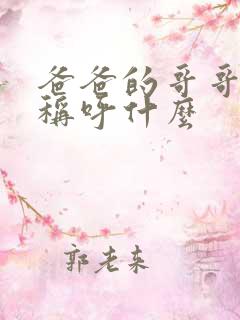 爸爸的哥哥
稱呼什麼
郭老来